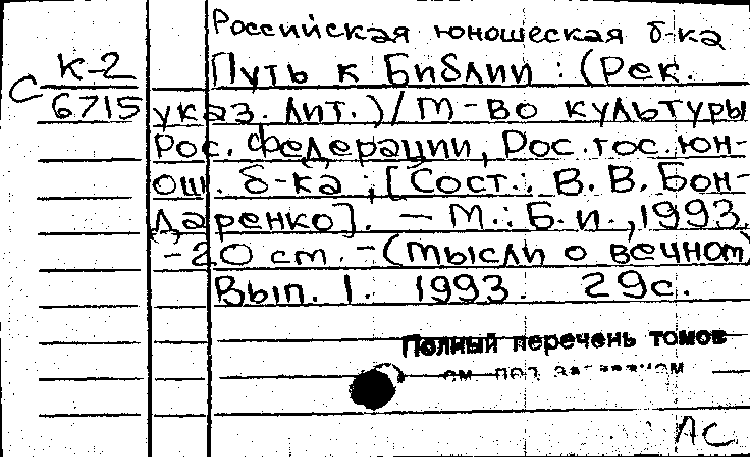 Российская юношеская б-ка
С К-2
6715
Путь к Библии : (Рек.
указ. лит.) / М-во культуры
Рос. Федерации, Рос. гос. юн-
ош. б-ка ; [Сост.: В. В. Бон-
даренко]. — М. : Б. и., 1993.
- 20 см. - (Мысли о вечном)
Вып. 1. 1993. 29с.
Полный перечень томов
см. под заглавием
АС